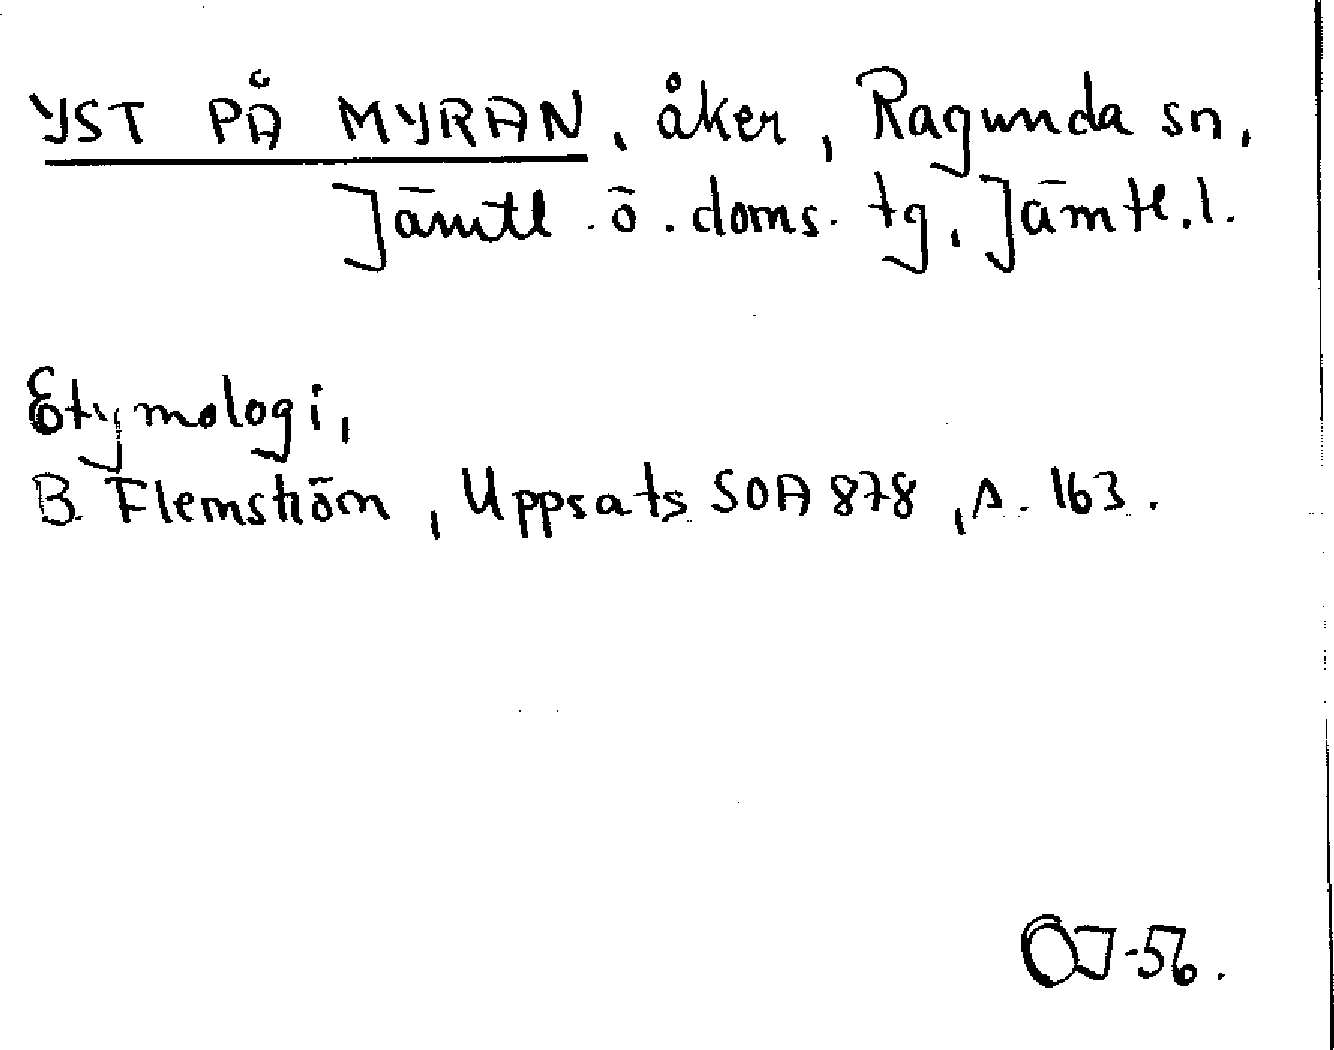 YST PÅ MYRAN, åker, Ragunda sn,
Jämtl. ö. doms. tg, Jämtl. l.
Etymologi,
B. Flemström, Uppsats SOA 878, s. 163.
OJ-56.